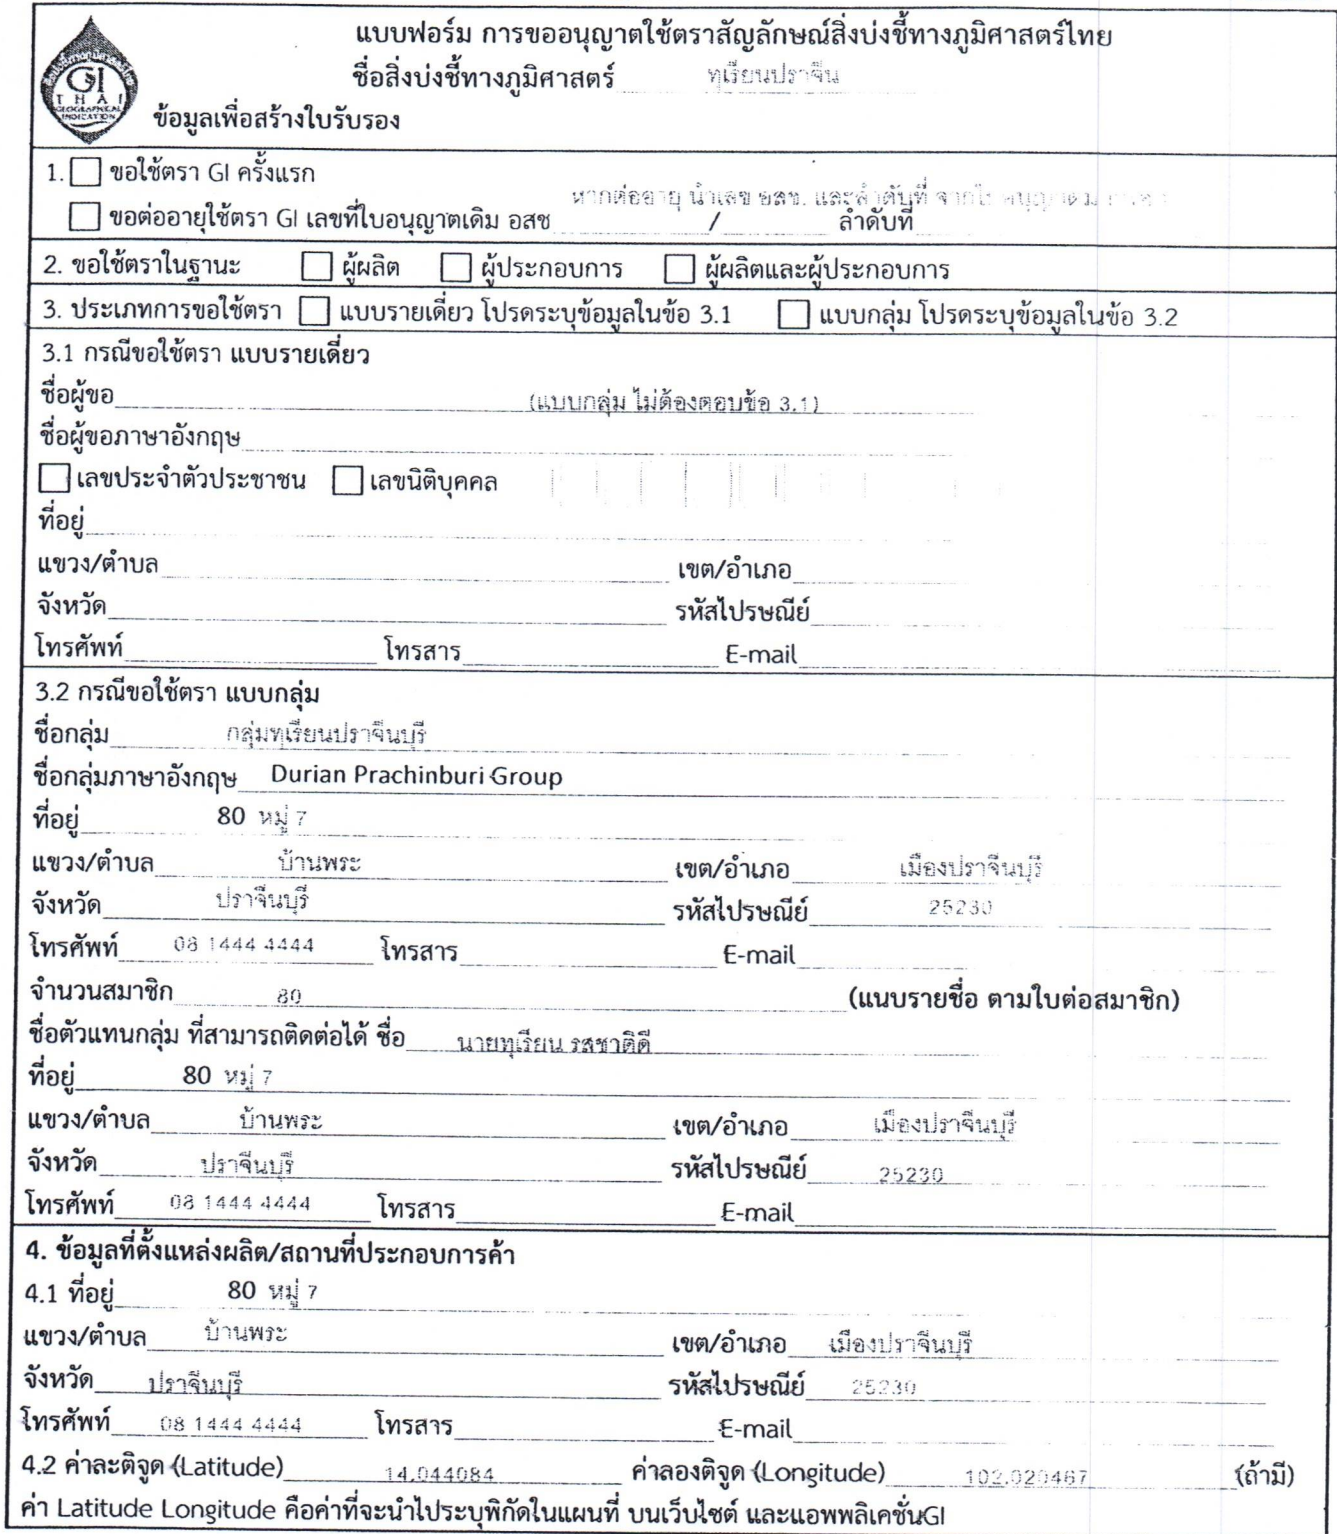 แบบฟอร์ม การขออนุญาตใช้ตราสัญลักษณ์สิ่งบ่งชี้ทางภูมิศาสตร์ไทย
ชื่อสิ่งบ่งชี้ทางภูมิศาสตร์ ทุเรียนปราจีน
GI
THAI
GEOGRAPHICAL
INDICATION
ข้อมูลเพื่อสร้างใบรับรอง
1. ขอใช้ตรา GI ครั้งแรก
หากต่ออายุ นำเลข อสช. และลำดับที่
ขอต่ออายุใช้ตรา GI เลขที่ใบอนุญาตเดิม อสช / ลำดับที่
2. ขอใช้ตราในฐานะ ผู้ผลิต ผู้ประกอบการ ผู้ผลิตและผู้ประกอบการ
3. ประเภทการขอใช้ตรา แบบรายเดี่ยว โปรดระบุข้อมูลในข้อ 3.1 แบบกลุ่ม โปรดระบุข้อมูลในข้อ 3.2
3.1 กรณีขอใช้ตรา แบบรายเดี่ยว
ชื่อผู้ขอ (แบบกลุ่ม ไม่ต้องตอบข้อ 3.1)
ชื่อผู้ขอภาษาอังกฤษ
เลขประจำตัวประชาชน เลขนิติบุคคล
ที่อยู่
แขวง/ตำบล เขต/อำเภอ
จังหวัด รหัสไปรษณีย์
โทรศัพท์ โทรสาร E-mail
3.2 กรณีขอใช้ตรา แบบกลุ่ม
ชื่อกลุ่ม กลุ่มทุเรียนปราจีนบุรี
ชื่อกลุ่มภาษาอังกฤษ Durian Prachinburi Group
ที่อยู่ 80 หมู่ 7
แขวง/ตำบล บ้านพระ เขต/อำเภอ เมืองปราจีนบุรี
จังหวัด ปราจีนบุรี รหัสไปรษณีย์ 25230
โทรศัพท์ 08 1444 4444 โทรสาร E-mail
จำนวนสมาชิก 80 (แนบรายชื่อ ตามใบต่อสมาชิก)
ชื่อตัวแทนกลุ่ม ที่สามารถติดต่อได้ ชื่อ นายทุเรียน รสชาติดี
ที่อยู่ 80 หมู่ 7
แขวง/ตำบล บ้านพระ เขต/อำเภอ เมืองปราจีนบุรี
จังหวัด ปราจีนบุรี รหัสไปรษณีย์ 25230
โทรศัพท์ 08 1444 4444 โทรสาร E-mail
4. ข้อมูลที่ตั้งแหล่งผลิต/สถานที่ประกอบการค้า
4.1 ที่อยู่ 80 หมู่ 7
แขวง/ตำบล บ้านพระ เขต/อำเภอ เมืองปราจีนบุรี
จังหวัด ปราจีนบุรี รหัสไปรษณีย์ 25230
โทรศัพท์ 08 1444 4444 โทรสาร E-mail
4.2 ค่าละติจูด (Latitude) 14.044084 ค่าลองติจูด (Longitude) 102.020467 (ถ้ามี)
ค่า Latitude Longitude คือค่าที่จะนำไประบุพิกัดในแผนที่ บนเว็บไซต์ และแอพพลิเคชั่นGI